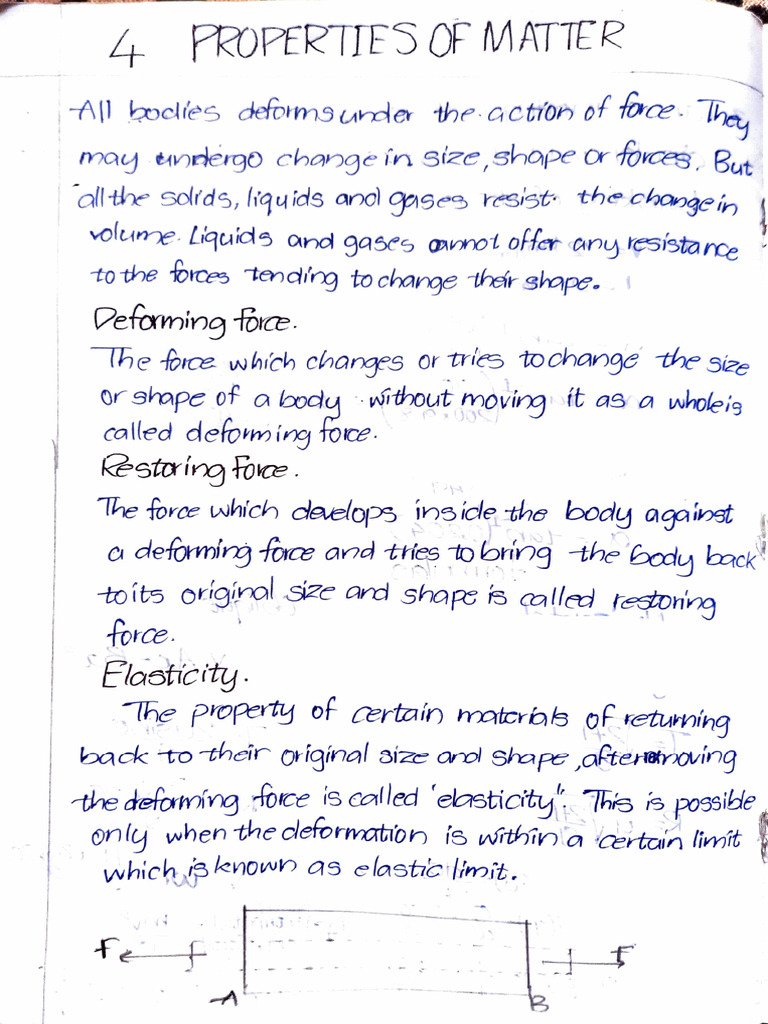 4 PROPERTIES OF MATTER
All bodies deforms under the action of force. They
may undergo change in size, shape or forces. But
all the solids, liquids and gases resist the change in
volume. Liquids and gases cannot offer any resistance
to the forces tending to change their shape.
Deforming force.
The force which changes or tries to change the size
or shape of a body without moving it as a whole is
called deforming force.
Restoring Force.
The force which develops inside the body against
a deforming force and tries to bring the body back
to its original size and shape is called restoring
force.
Elasticity.
The property of certain materials of returning
back to their original size and shape, after removing
the deforming force is called 'elasticity'. This is possible
only when the deformation is within a certain limit
which is known as elastic limit.
F F
A B